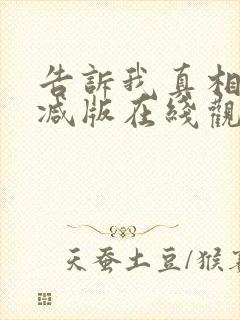 告訴我真相
減版在綫觀
天蚕土豆/猴